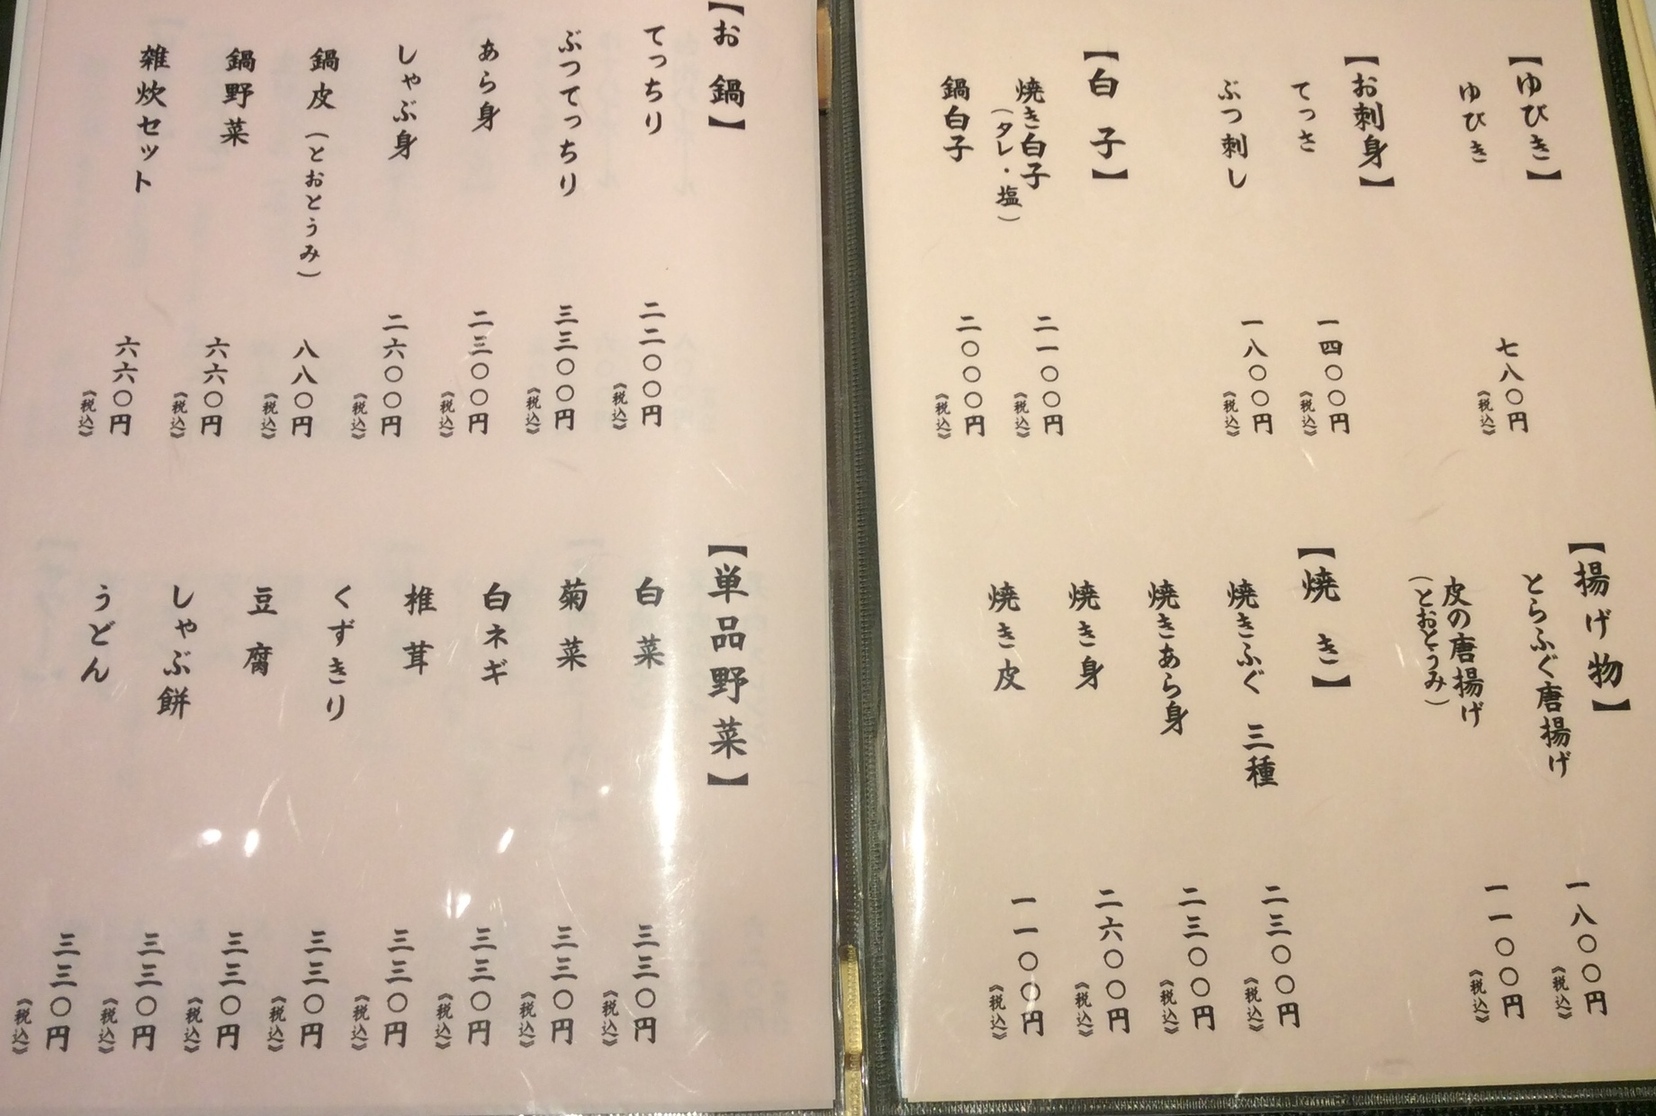 【ゆびき】
ゆびき
七八〇円
《税込》
【お刺身】
てっさ
一四〇〇円
《税込》
ぶつ刺し
一八〇〇円
《税込》
【白子】
焼き白子
（タレ・塩）
二一〇〇円
《税込》
鍋白子
二〇〇〇円
《税込》
【揚げ物】
とらふぐ唐揚げ
一八〇〇円
《税込》
皮の唐揚げ
（とおとうみ）
一一〇〇円
《税込》
【焼き】
焼きふぐ 三種
二三〇〇円
《税込》
焼きあら身
二三〇〇円
《税込》
焼き身
二六〇〇円
《税込》
焼き皮
一一〇〇円
《税込》
【お鍋】
てっちり
二二〇〇円
《税込》
ぶつてっちり
三三〇〇円
《税込》
あら身
二三〇〇円
《税込》
しゃぶ身
二六〇〇円
《税込》
鍋皮（とおとうみ）
八八〇円
《税込》
鍋野菜
六六〇円
《税込》
雑炊セット
六六〇円
《税込》
【単品野菜】
白菜
三三〇円
《税込》
菊菜
三三〇円
《税込》
白ネギ
三三〇円
《税込》
椎茸
三三〇円
《税込》
くずきり
三三〇円
《税込》
豆腐
三三〇円
《税込》
しゃぶ餅
三三〇円
《税込》
うどん
三三〇円
《税込》